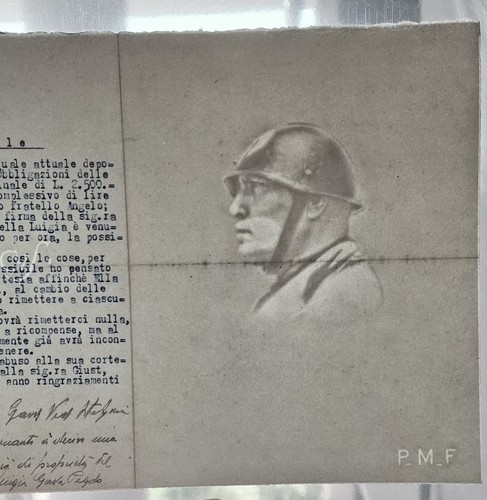 l e
uale attuale depo=
bbligazioni delle
nale di L. 2.500.=
omplessivo di lire
o fratello Angelo;
firma della sig.ra
ella Luigia è venu=
o per ora, la possi=
così le cose, per
ssibile ho pensato
tesia affinchè Ella
, al cambio delle
o rimettere a ciascu=
a.
ovrà rimetterci nulla,
a ricompense, ma al
mente già avrà incon=
enere.
abuso alla sua corte=
alla sig.ra Giust,
anno ringraziamenti
una
di proprietà del
P_M_F